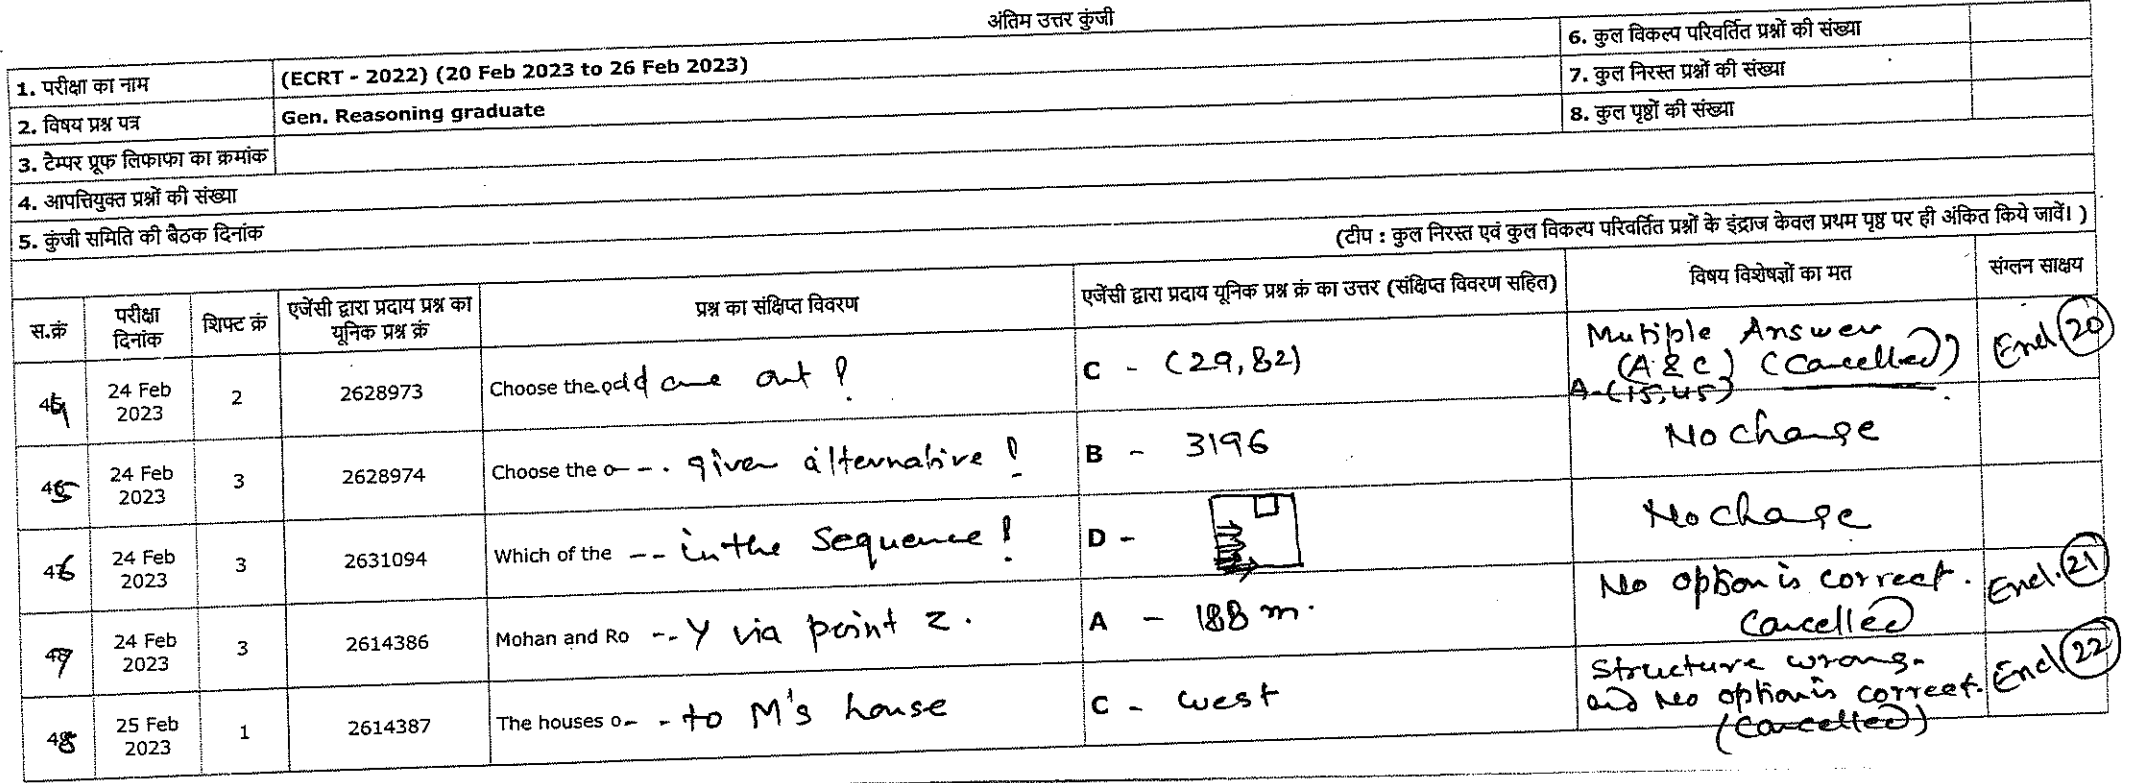 अंतिम उत्तर कुंजी
1. परीक्षा का नाम (ECRT - 2022) (20 Feb 2023 to 26 Feb 2023) 6. कुल विकल्प परिवर्तित प्रश्नों की संख्या
2. विषय प्रश्न पत्र Gen. Reasoning graduate 7. कुल निरस्त प्रश्नों की संख्या
3. टैम्पर प्रूफ लिफाफा का क्रमांक 8. कुल पृष्ठों की संख्या
4. आपत्तियुक्त प्रश्नों की संख्या
5. कुंजी समिति की बैठक दिनांक
(टीप : कुल निरस्त एवं कुल विकल्प परिवर्तित प्रश्नों के इंद्राज केवल प्रथम पृष्ठ पर ही अंकित किये जावें। )
स.क्रं परीक्षा दिनांक शिफ्ट क्रं एजेंसी द्वारा प्रदाय प्रश्न का यूनिक प्रश्न क्रं प्रश्न का संक्षिप्त विवरण एजेंसी द्वारा प्रदाय यूनिक प्रश्न क्रं का उत्तर (संक्षिप्त विवरण सहित) विषय विशेषज्ञों का मत संग्लन साक्षय
24 Feb 2023 2 2628973 Choose the odd one out ? C - (29,82) Mutiple Answer (A & C) (Cancelled) A-(15,45) Encl. 20
45 24 Feb 2023 3 2628974 Choose the o--. given alternative ! B - 3196 No change
46 24 Feb 2023 3 2631094 Which of the -- in the sequence ! D - No change
47 24 Feb 2023 3 2614386 Mohan and Ro -- Y via point z. A - 188 m. No option is correct. Cancelled Encl. 21
48 25 Feb 2023 1 2614387 The houses o- - to M's house C - west Structure wrong and No option is correct. (Cancelled) Encl 22